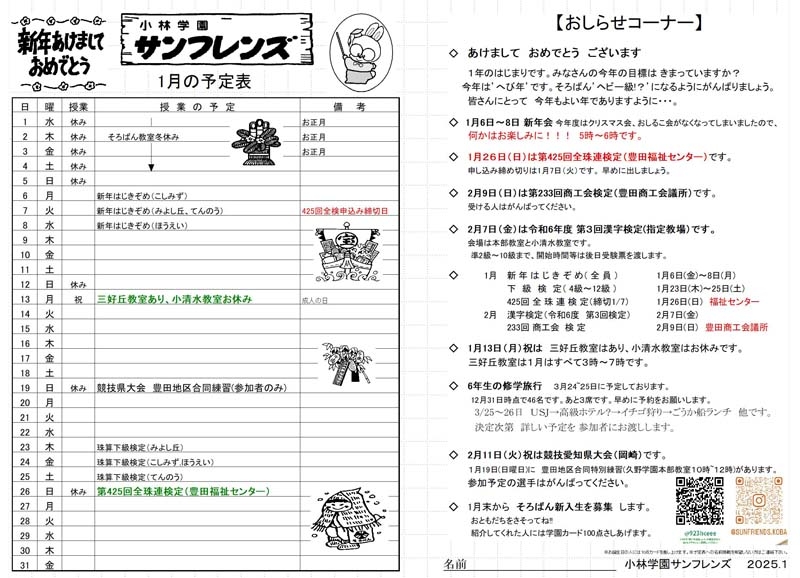 新年あけまして
おめでとう
小林学園
サンフレンズ
1月の予定表
日 曜 授業 授業の予定 備考
1 水 休み お正月
2 木 休み そろばん教室冬休み お正月
3 金 休み お正月
4 土 休み
5 日 休み
6 月 新年はじきぞめ(こしみず)
7 火 新年はじきぞめ(みよし丘、てんのう) 425回全検申込み締切日
8 水 新年はじきぞめ(ほうえい)
9 木
10 金
11 土
12 日 休み
13 月 祝 三好丘教室あり、小清水教室お休み 成人の日
14 火
15 水
16 木
17 金
18 土
19 日 休み 競技県大会 豊田地区合同練習(参加者のみ)
20 月
21 火
22 水
23 木 珠算下級検定(みよし丘)
24 金 珠算下級検定(こしみず,ほうえい)
25 土 珠算下級検定(てんのう)
26 日 休み 第425回全珠連検定(豊田福祉センター)
27 月
28 火
29 水
30 木
31 金
【おしらせコーナー】
◇ あけまして おめでとう ございます
1年のはじまりです。みなさんの今年の目標は きまっていますか?
今年は'へび年'です。そろばん'ヘビー級!?'になるようにがんばりましょう。
皆さんにとって 今年もよい年でありますように・・・。
◇ 1月6日~8日 新年会 今年度はクリスマス会、おしるこ会がなくなってしまいましたので、
何かはお楽しみに!!! 5時~6時です。
◇ 1月26日(日)は第425回全珠連検定(豊田福祉センター)です。
申し込み締め切りは1月7日(火)です。早めに出しましょう。
◇ 2月9日(日)は第233回商工会検定(豊田商工会議所)です。
受ける人はがんばってください。
◇ 2月7日(金)は令和6年度 第3回漢字検定(指定教場)です。
会場は本部教室と小清水教室です。
準2級~10級まで、開始時間等は後日受験票を渡します。
◇ 1月 新年はじきぞめ(全員) 1月6日(金)~8日(月)
下級検定(4級~12級) 1月23日(木)~25日(土)
425回全珠連検定(締切1/7) 1月26日(日) 福祉センター
2月 漢字検定(令和6度 第3回検定) 2月7日(金)
233回 商工会 検定 2月9日(日) 豊田商工会議所
◇ 1月13日(月)祝は 三好丘教室はあり、小清水教室はお休みです。
三好丘教室は1月はすべて3時~7時です。
◇ 6年生の修学旅行 3月24~25日に予定しております。
12月31日時点で46名です。あと3席です。早めに予約をお願いします。
3/25~26日 USJ→高級ホテル?→イチゴ狩り→ごうか船ランチ 他です。
決定次第 詳しい予定を 参加者にお渡しします。
◇ 2月11日(火)祝は競技愛知県大会(岡崎)です。
1月19日(日曜日)に 豊田地区合同特別練習(久野学園本部教室10時~12時)があります。
参加予定の選手はがんばってください。
◇ 1月末から そろばん新入生を募集 します。
おともだちをさそってね!!
紹介してくれた人には学園カード100点さしあげます。
@923hceee
@SUNFRIENDS.KOBA
名前
小林学園サンフレンズ 2025.1